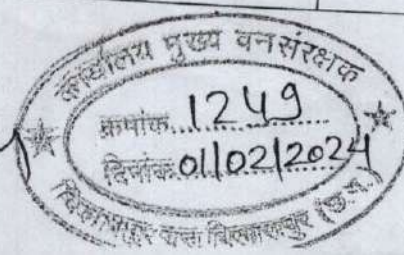 कार्यालय मुख्य वन संरक्षक
क्रमांक 1249
दिनांक 01/02/2024
बिलासपुर वृत्त बिलासपुर (छ.ग.)